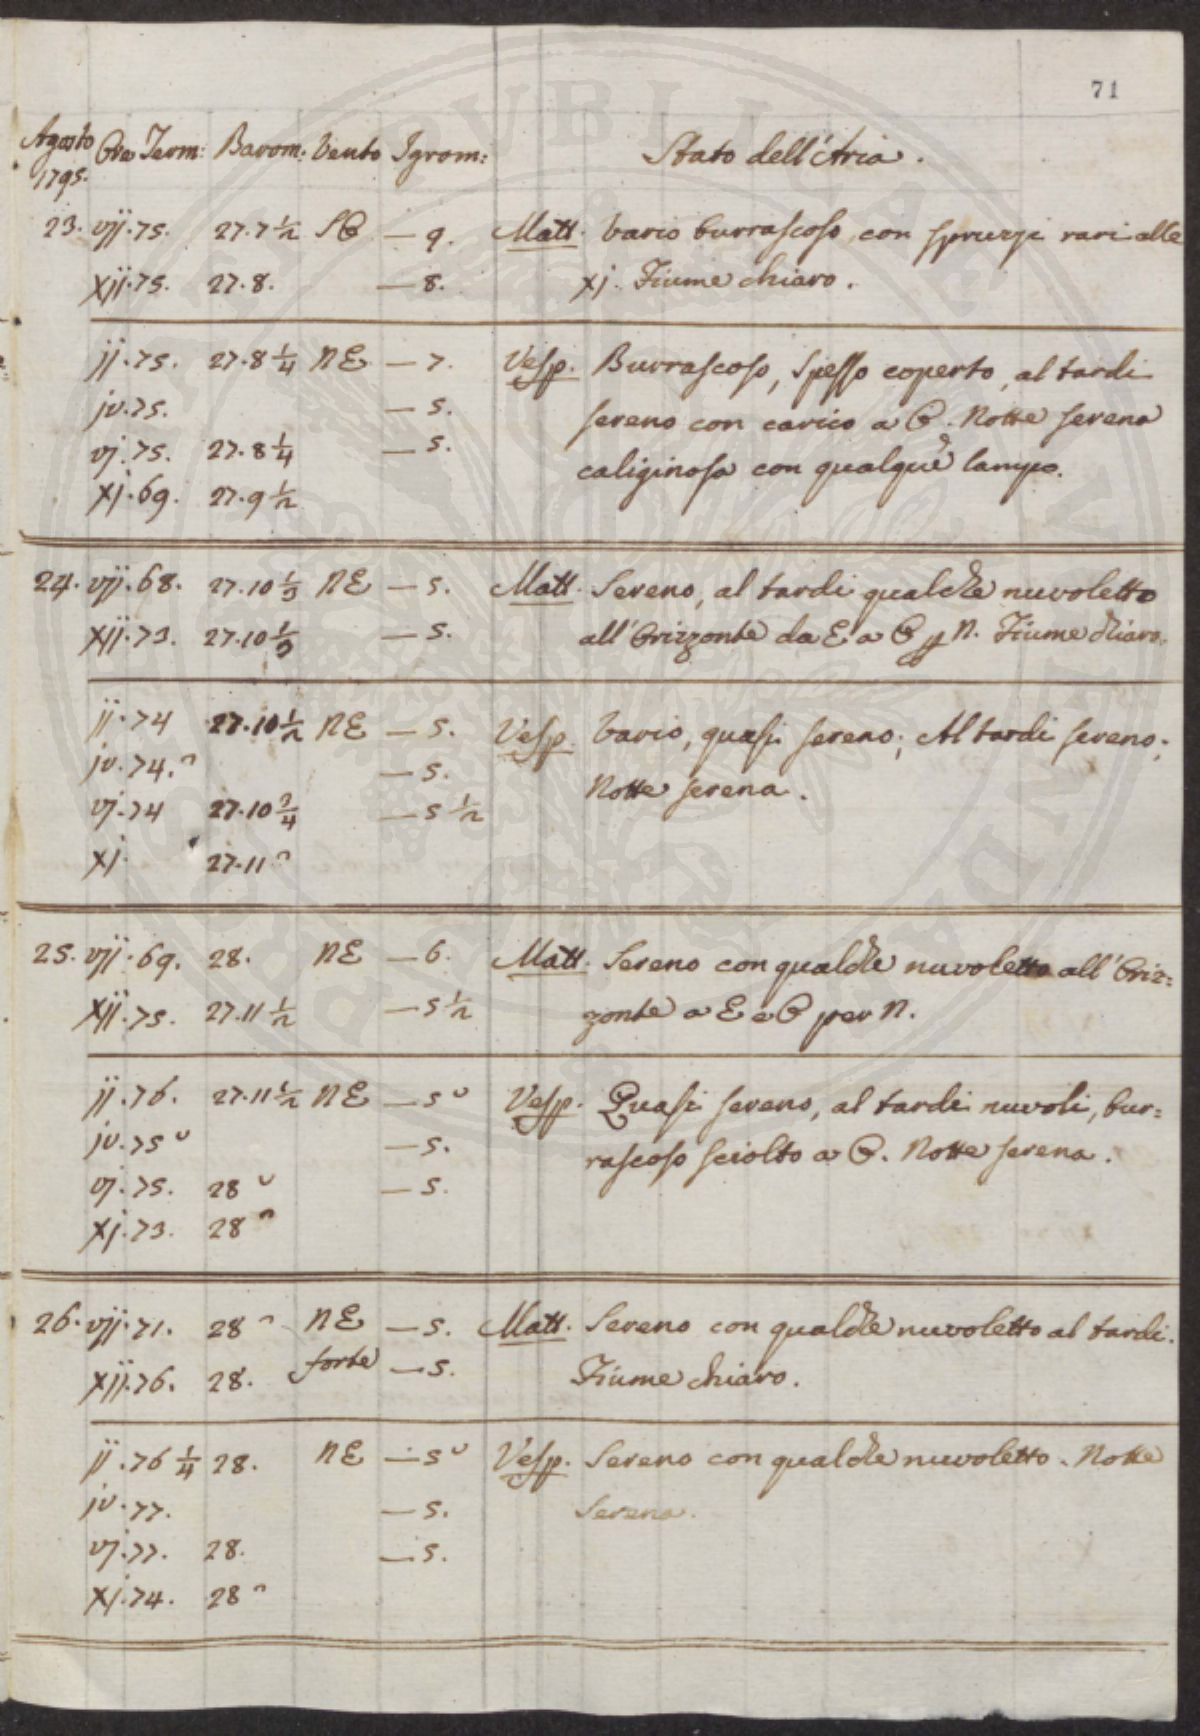 71
Agosto Ore Term: Barom: Vento Igrom: Stato dell'Aria.
1795.
23. vij. 75. 27.7 1/2 SO — 9. Matt. Vario burrascoso, con spruzzi rari alle
xij. 75. 27.8. — 8. xj. Fiume chiaro.
ij. 75. 27.8 1/4 NE — 7. Vesp. Burrascoso, spesso coperto, al tardi
iv. 75. — 5. sereno con carico a O. Notte serena
vj. 75. 27.8 1/4 — 5. caliginosa con qualche lampo.
xj. 69. 27.9 1/2
24. vij. 68. 27.10 1/3 NE — 5. Matt. Sereno, al tardi qualche nuvoletto
xij. 73. 27.10 1/3 — 5. all'Orizzonte da E a O p N. Fiume chiaro.
ij. 74 27.10 1/2 NE — 5. Vesp. Vario, quasi sereno; Al tardi sereno;
iv. 74. — 5. Notte serena.
vj. 74 27.10 3/4 — 5 1/2
xj. 27.11
25. vij. 69. 28. NE — 6. Matt. Sereno con qualche nuvoletto all'Oriz=
xij. 75. 27.11 1/2 — 5 1/2 zonte a E e O per N.
ij. 76. 27.11 1/2 NE — 5 Vesp. Quasi sereno, al tardi nuvoli, bur=
iv. 75 — 5. rascoso sciolto a O. Notte serena.
vj. 75. 28 — 5.
xj. 73. 28
26. vij. 71. 28 NE — 5. Matt. Sereno con qualche nuvoletto al tardi.
xij. 76. 28. forte — 5. Fiume chiaro.
ij. 76 1/4 28. NE — 5 Vesp. Sereno con qualche nuvoletto. Notte
iv. 77. — 5. serena.
vj. 77. 28. — 5.
xj. 74. 28